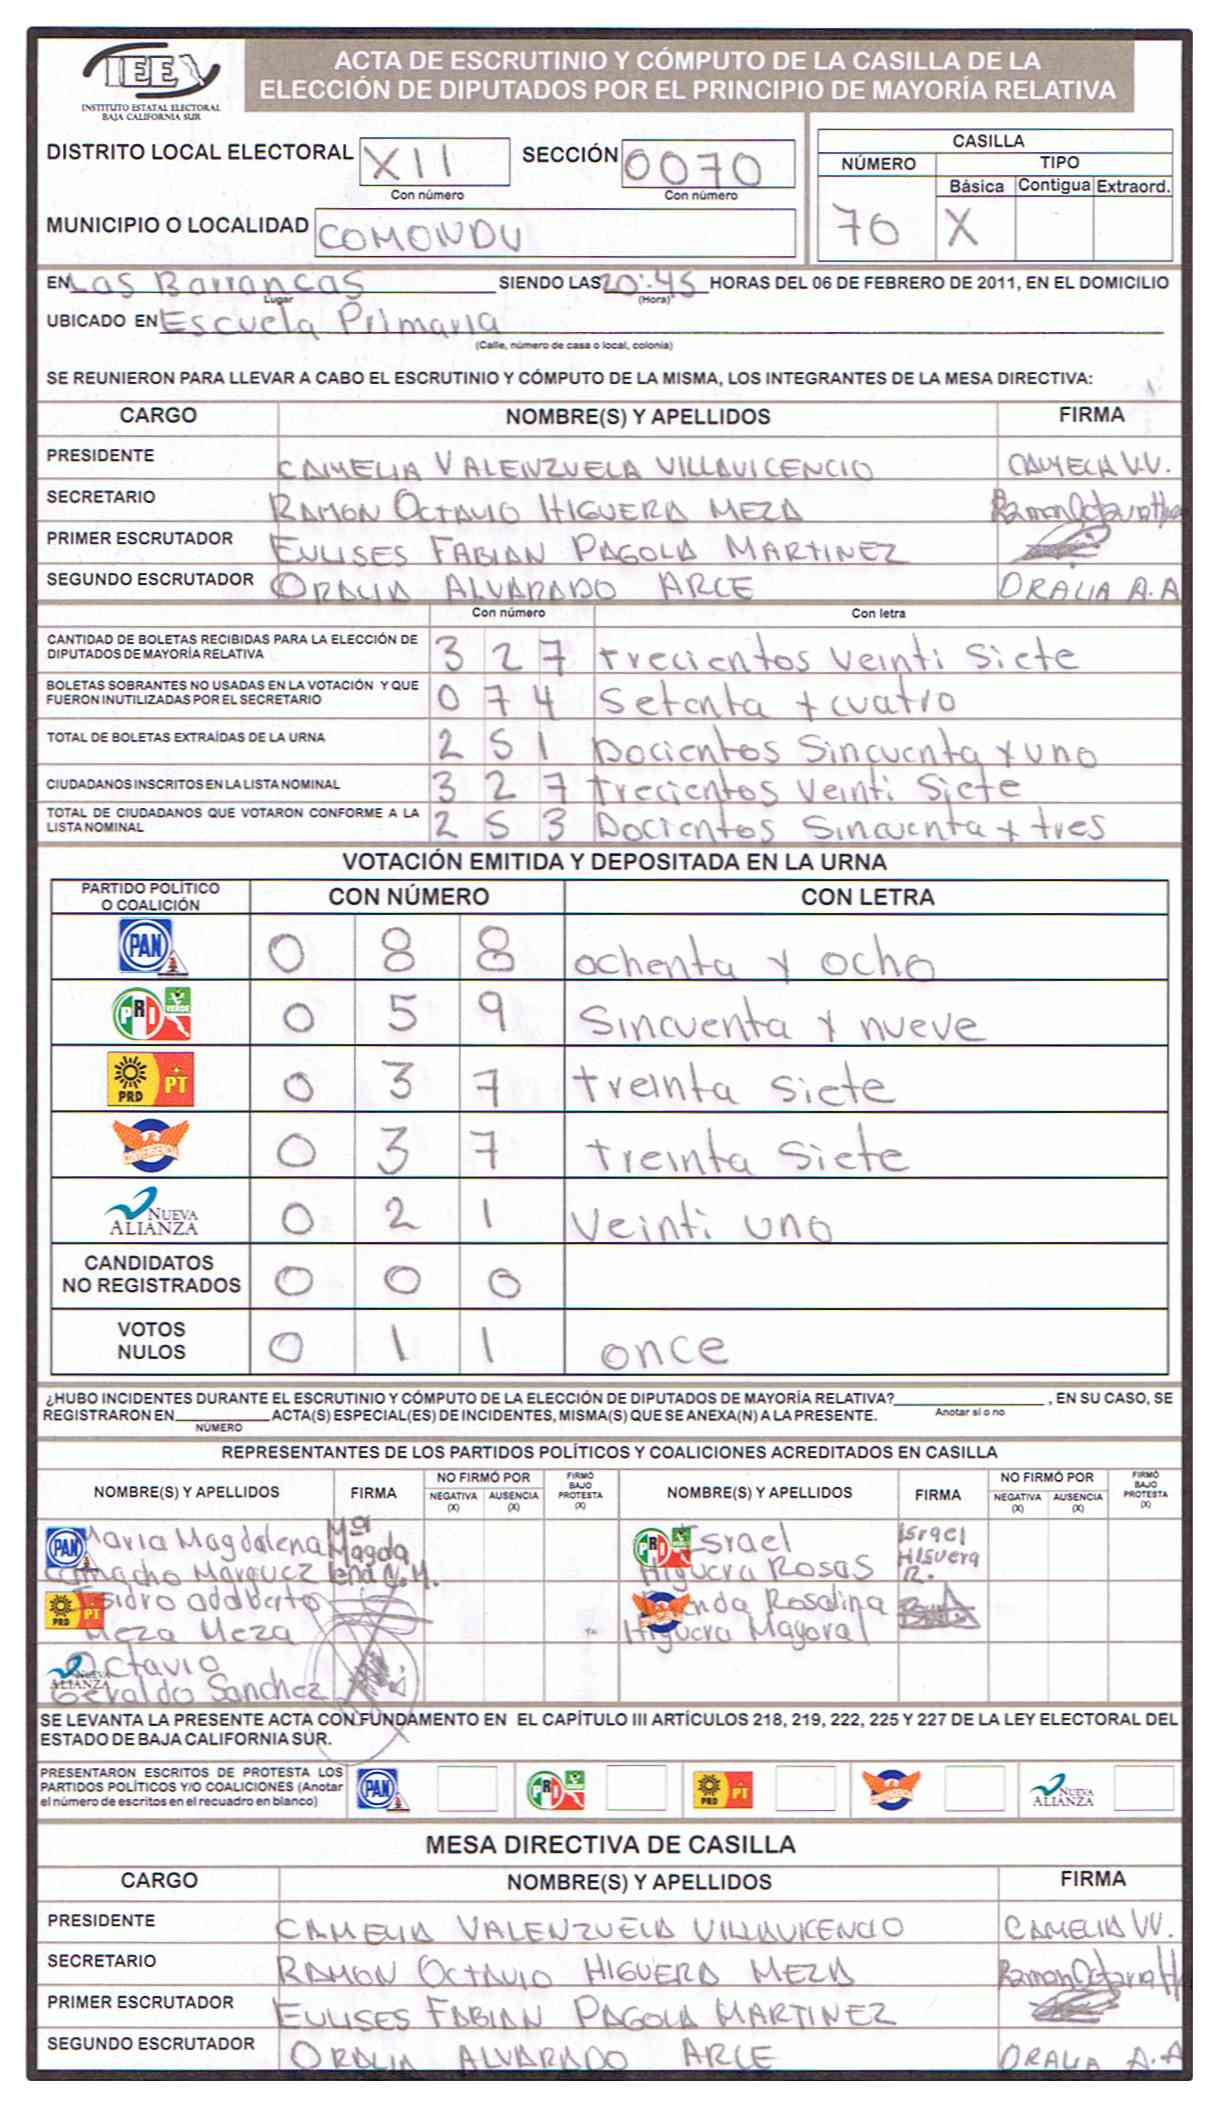 IEE
INSTITUTO ESTATAL ELECTORAL
BAJA CALIFORNIA SUR
ACTA DE ESCRUTINIO Y CÓMPUTO DE LA CASILLA DE LA
ELECCIÓN DE DIPUTADOS POR EL PRINCIPIO DE MAYORÍA RELATIVA
DISTRITO LOCAL ELECTORAL XII SECCIÓN 0070
Con número Con número
MUNICIPIO O LOCALIDAD COMONDU
CASILLA
NÚMERO TIPO
Básica Contigua Extraord.
70 X
EN Las Barrancas SIENDO LAS 20:45 HORAS DEL 06 DE FEBRERO DE 2011, EN EL DOMICILIO
Lugar (Hora)
UBICADO EN Escuela Primaria
(Calle, número de casa o local, colonia)
SE REUNIERON PARA LLEVAR A CABO EL ESCRUTINIO Y CÓMPUTO DE LA MISMA, LOS INTEGRANTES DE LA MESA DIRECTIVA:
CARGO NOMBRE(S) Y APELLIDOS FIRMA
PRESIDENTE CAMELIA VALENZUELA VILLAVICENCIO CAMELIA V.V.
SECRETARIO RAMON OCTAVIO HIGUERA MEZA
PRIMER ESCRUTADOR EULISES FABIAN PAGOLA MARTINEZ
SEGUNDO ESCRUTADOR ORALIA ALVARADO ARCE ORALIA A.A
Con número Con letra
CANTIDAD DE BOLETAS RECIBIDAS PARA LA ELECCIÓN DE
DIPUTADOS DE MAYORÍA RELATIVA 3 2 7 trecientos Veinti Siete
BOLETAS SOBRANTES NO USADAS EN LA VOTACIÓN Y QUE
FUERON INUTILIZADAS POR EL SECRETARIO 0 7 4 Setenta y cuatro
TOTAL DE BOLETAS EXTRAÍDAS DE LA URNA 2 5 1 Docientos Sincuenta y uno
CIUDADANOS INSCRITOS EN LA LISTA NOMINAL 3 2 7 trecientos Veinti Siete
TOTAL DE CIUDADANOS QUE VOTARON CONFORME A LA
LISTA NOMINAL 2 5 3 Docientos Sincuenta y tres
VOTACIÓN EMITIDA Y DEPOSITADA EN LA URNA
PARTIDO POLÍTICO
O COALICIÓN CON NÚMERO CON LETRA
PAN 0 8 8 ochenta y ocho
PRI VERDE 0 5 9 Sincuenta y nueve
PRD PT 0 3 7 treinta Siete
CONVERGENCIA 0 3 7 treinta Siete
NUEVA
ALIANZA 0 2 1 Veinti uno
CANDIDATOS
NO REGISTRADOS 0 0 0
VOTOS
NULOS 0 1 1 once
¿HUBO INCIDENTES DURANTE EL ESCRUTINIO Y CÓMPUTO DE LA ELECCIÓN DE DIPUTADOS DE MAYORÍA RELATIVA? , EN SU CASO, SE
Anotar si o no
REGISTRARON EN ACTA(S) ESPECIAL(ES) DE INCIDENTES, MISMA(S) QUE SE ANEXA(N) A LA PRESENTE.
NÚMERO
REPRESENTANTES DE LOS PARTIDOS POLÍTICOS Y COALICIONES ACREDITADOS EN CASILLA
NOMBRE(S) Y APELLIDOS FIRMA NO FIRMÓ POR NEGATIVA (X) AUSENCIA (X) FIRMÓ BAJO PROTESTA (X) NOMBRE(S) Y APELLIDOS FIRMA NO FIRMÓ POR NEGATIVA (X) AUSENCIA (X) FIRMÓ BAJO PROTESTA (X)
PAN Maria Magdalena Mª Magda PRI VERDE Israel Israel
Camacho Marquez lena C.M. Higuera Rosas Higuera R.
PRD PT Isidro adalberto Rosalina
Meza Meza Higuera
NUEVA ALIANZA Octavio
Geraldo Sanchez
SE LEVANTA LA PRESENTE ACTA CON FUNDAMENTO EN EL CAPÍTULO III ARTÍCULOS 218, 219, 222, 225 Y 227 DE LA LEY ELECTORAL DEL
ESTADO DE BAJA CALIFORNIA SUR.
PRESENTARON ESCRITOS DE PROTESTA LOS
PARTIDOS POLÍTICOS Y/O COALICIONES (Anotar
el número de escritos en el recuadro en blanco) PAN PRI VERDE PRD PT NUEVA ALIANZA
MESA DIRECTIVA DE CASILLA
CARGO NOMBRE(S) Y APELLIDOS FIRMA
PRESIDENTE CAMELIA VALENZUELA VILLAVICENCIO CAMELIA VV.
SECRETARIO RAMON OCTAVIO HIGUERA MEZA
PRIMER ESCRUTADOR EULISES FABIAN PAGOLA MARTINEZ
SEGUNDO ESCRUTADOR ORALIA ALVARADO ARCE ORALIA A.A